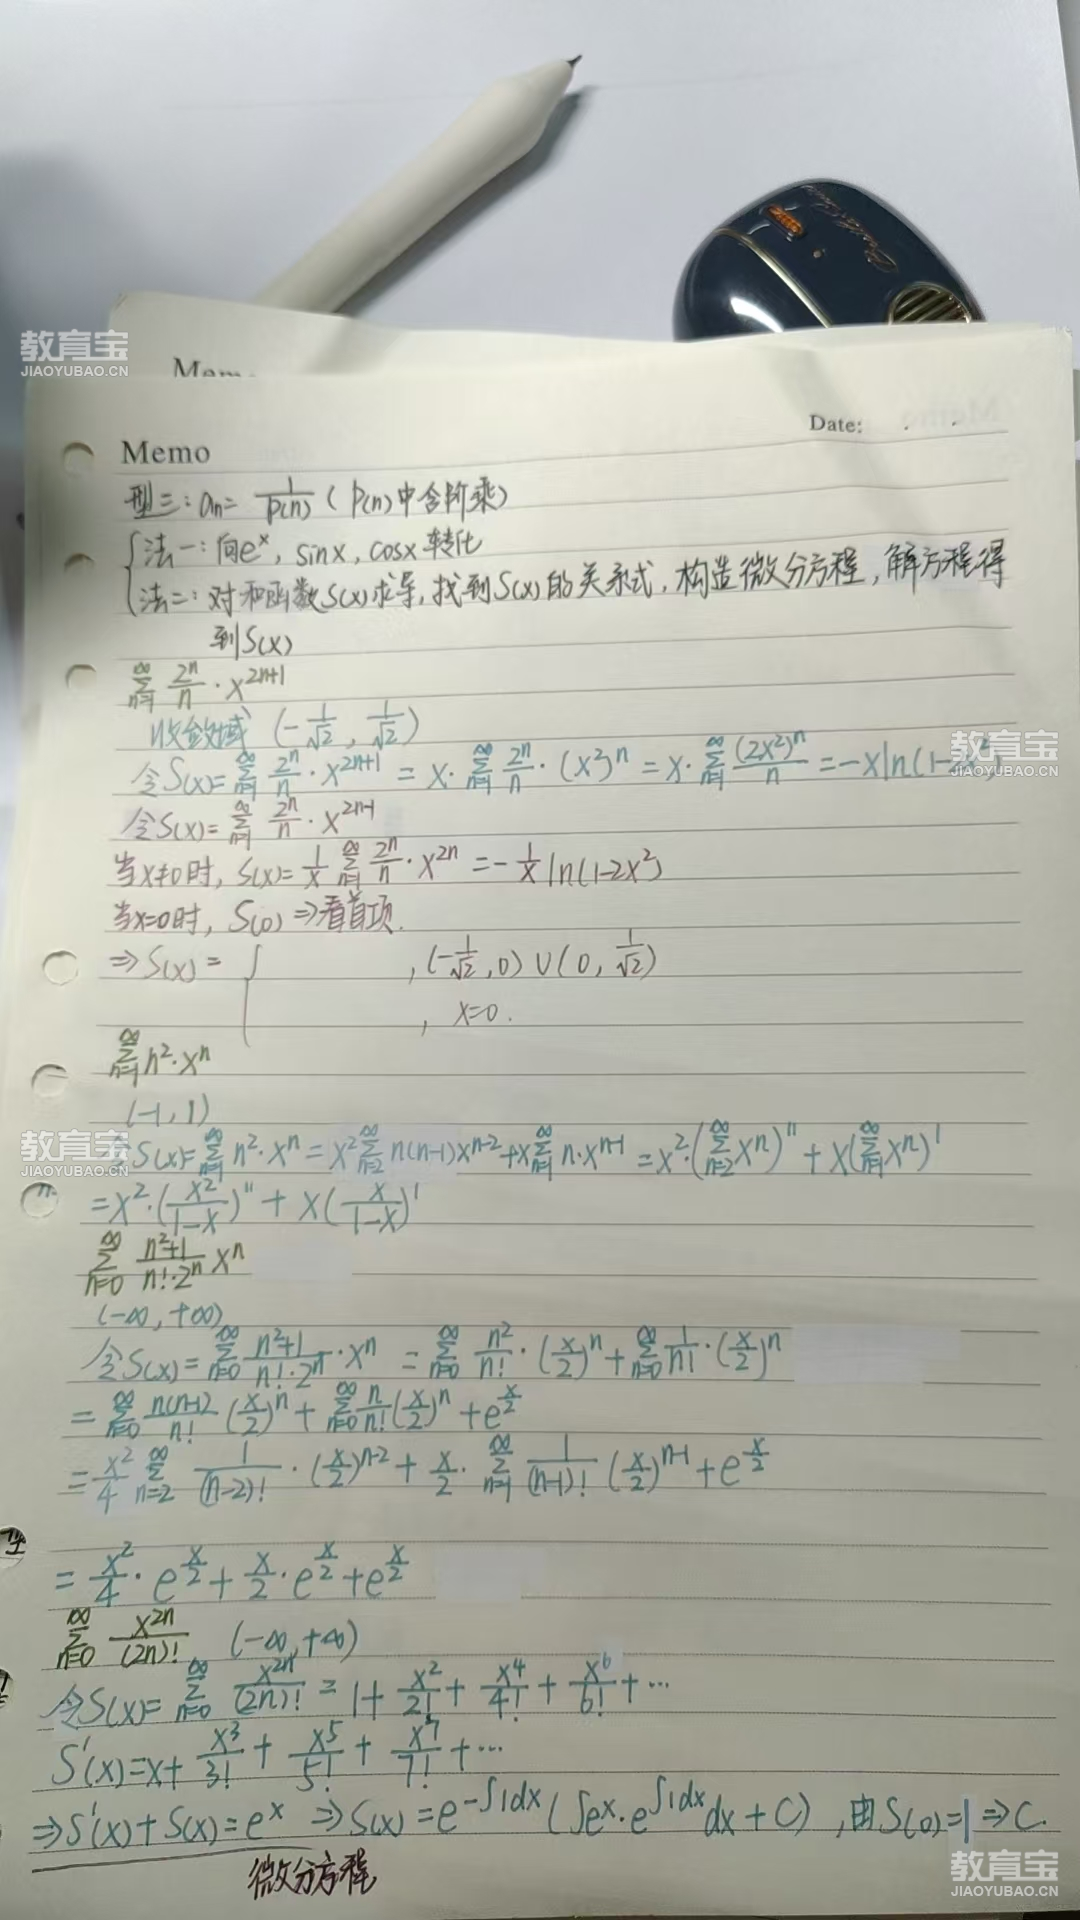 教育宝
JIAOYUBAO.CN
Memo
Date: . .
Memo
型三: aₙ= 1/p(n) (p(n)中含阶乘)
法一: 向eˣ, sinx, cosx转化
法二: 对和函数S(x)求导, 找到S(x)的关系式, 构造微分方程, 解方程得
到S(x)
∑_{n=1}^{∞} 2ⁿ/n · x^{2n+1}
收敛域 (-1/√2, 1/√2)
教育宝
JIAOYUBAO.CN
令S(x)=∑_{n=1}^{∞} 2ⁿ/n · x^{2n+1} = x·∑_{n=1}^{∞} 2ⁿ/n · (x²)ⁿ = x·∑_{n=1}^{∞} (2x²)ⁿ/n = -xln(1-2x²)
令S(x)=∑_{n=1}^{∞} 2ⁿ/n · x^{2n-1}
当x≠0时, S(x)=1/x ∑_{n=1}^{∞} 2ⁿ/n · x^{2n} = -1/x ln(1-2x²)
当x=0时, S(0)⇒看首项.
⇒S(x)= { , (-1/√2, 0)∪(0, 1/√2)
, x=0.
∑_{n=1}^{∞} n²·xⁿ
(-1, 1)
教育宝
JIAOYUBAO.CN
令S(x)=∑_{n=1}^{∞} n²·xⁿ = x²∑_{n=2}^{∞} n(n-1)x^{n-2}+x∑_{n=1}^{∞} n·x^{n-1} = x²·(∑_{n=2}^{∞} xⁿ)'' + x(∑_{n=1}^{∞} xⁿ)'
=x²·(x²/(1-x))'' + x(x/(1-x))'
∑_{n=0}^{∞} (n²+1)/(n!·2ⁿ) xⁿ
(-∞, +∞)
令S(x)=∑_{n=0}^{∞} (n²+1)/(n!·2ⁿ)·xⁿ = ∑_{n=0}^{∞} n²/n!·(x/2)ⁿ+∑_{n=0}^{∞} 1/n!·(x/2)ⁿ
=∑_{n=0}^{∞} n(n-1)/n! (x/2)ⁿ+∑_{n=0}^{∞} n/n!(x/2)ⁿ+e^{x/2}
=x²/4 ∑_{n=2}^{∞} 1/(n-2)!·(x/2)^{n-2}+x/2·∑_{n=1}^{∞} 1/(n-1)! (x/2)^{n-1}+e^{x/2}
=x²/4·e^{x/2}+x/2·e^{x/2}+e^{x/2}
∑_{n=0}^{∞} x^{2n}/(2n)! (-∞,+∞)
令S(x)=∑_{n=0}^{∞} x^{2n}/(2n)! = 1+x²/2!+x⁴/4!+x⁶/6!+…
S'(x)=x+x³/3!+x⁵/5!+x⁷/7!+…
⇒S'(x)+S(x)=eˣ ⇒S(x)=e^{-∫1dx}(∫eˣ·e^{∫1dx}dx+C), 由S(0)=1⇒C.
微分方程
教育宝
JIAOYUBAO.CN